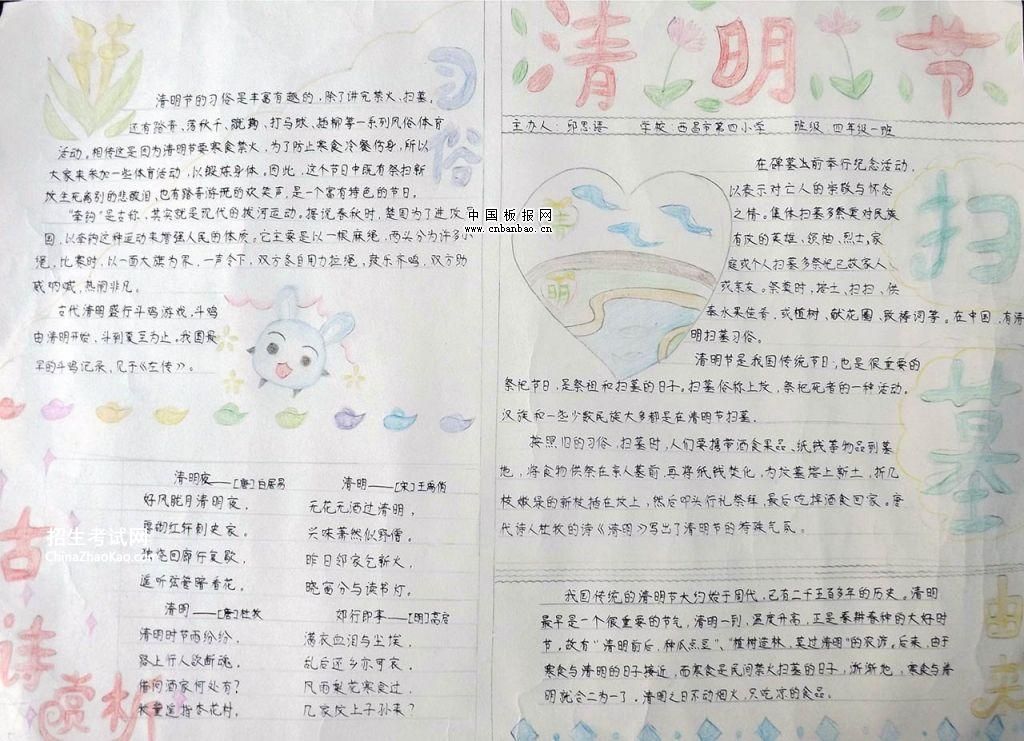 清明节
主办人：邱思语 学校：西昌市第四小学 班级：四年级一班
习俗
清明节的习俗是丰富有趣的，除了讲究禁火、扫墓，
还有踏青、荡秋千、蹴鞠、打马球、插柳等一系列风俗体育
活动。相传这是因为清明节要寒食禁火，为了防止寒食冷餐伤身，所以
大家来参加一些体育活动，以锻炼身体。因此，这个节日中既有祭扫新
坟生死离别的悲酸泪，也有踏青游玩的欢笑声，是一个富有特色的节日。
"牵钩"是古称，其实就是现代的拔河运动。据说春秋时，楚国为了进攻
国，以牵钩这种运动来增强人民的体质。它主要是以一根麻绳，两头分为许多小
绳，比赛时，以一面大旗为界，一声令下，双方各自用力拉绳，鼓乐齐鸣，双方助
威呐喊，热闹非凡。
古代清明盛行斗鸡游戏，斗鸡
由清明开始，斗到夏至为止。我国最
早的斗鸡记录，见于《左传》。
中国板报网
www.cnbanbao.cn
扫墓
在碑墓当前举行纪念活动，
以表示对亡人的崇敬与怀念
之情。集体扫墓多祭奠对民族
有攻的英雄、领袖、烈士，家
庭或个人扫墓多祭祀已故家人、
或亲友。祭奠时，培土、扫扫、供
奉水果佳香，或植树、献花圈、致悼词等。在中国，有清
明扫墓习俗。
清明节是我国传统节日，也是很重要的
祭祀节日，是祭祖和扫墓的日子。扫墓俗称上坟，祭祀死者的一种活动。
汉族和一些少数民族大多都是在清明节扫墓。
按照旧的习俗，扫墓时，人们要携带酒食果品、纸钱等物品到墓
地，将食物供祭在亲人墓前，再将纸钱焚化，为坟墓培上新土，折几
枝嫩绿的新枝插在坟上，然后叩头行礼祭拜，最后吃掉酒食回家。唐
代诗人杜牧的诗《清明》写出了清明节的特殊气氛。
清明
古诗赏析
清明夜——[唐]白居易
好风胧月清明夜，
碧砌红轩刺史家。
独绕回廊行复歇，
遥听弦管暗看花。
清明——[宋]王禹偁
无花无酒过清明，
兴味萧然似野僧。
昨日邻家乞新火，
晓窗分与读书灯。
清明——[唐]杜牧
清明时节雨纷纷，
路上行人欲断魂。
借问酒家何处有？
牧童遥指杏花村。
郊行即事——[明]高启
满衣血泪与尘埃，
乱后还乡亦可哀。
风雨梨花寒食过，
几家坟上子孙来？
招生考试网
ChinaZhaoKao.com
由来
我国传统的清明节大约始于周代，已有二千五百多年的历史。清明
最早是一个很重要的节气，清明一到，温度升高，正是春耕春种的大好时
节，故有"清明前后，种瓜点豆"、"植树造林，莫过清明"的农谚。后来，由于
寒食与清明的日子接近，而寒食是民间禁火扫墓的日子，渐渐地，寒食与清
明就合二为一了，清明之日不动烟火，只吃凉的食品。